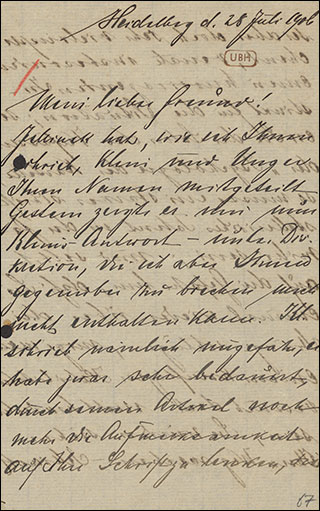 Heidelberg d. 28 Juli 1906
UBH
Mein lieber Freund!
Jellinek hat, wie ich Ihnen
schrieb, Klein und Unger
Ihren Namen mitgeteilt
Gestern zeigte er mir nun
Kleins Antwort – unter Dis-
kretion, die ich aber Ihnen
gegenüber zu brechen mich
nicht enthalten kann. Kl.
schrieb nämlich ungefähr, er
habe zwar sehr bedauert,
durch seinen Artikel noch
mehr die Aufmerksamkeit
auf Ihre Schrift zu lenken,
67